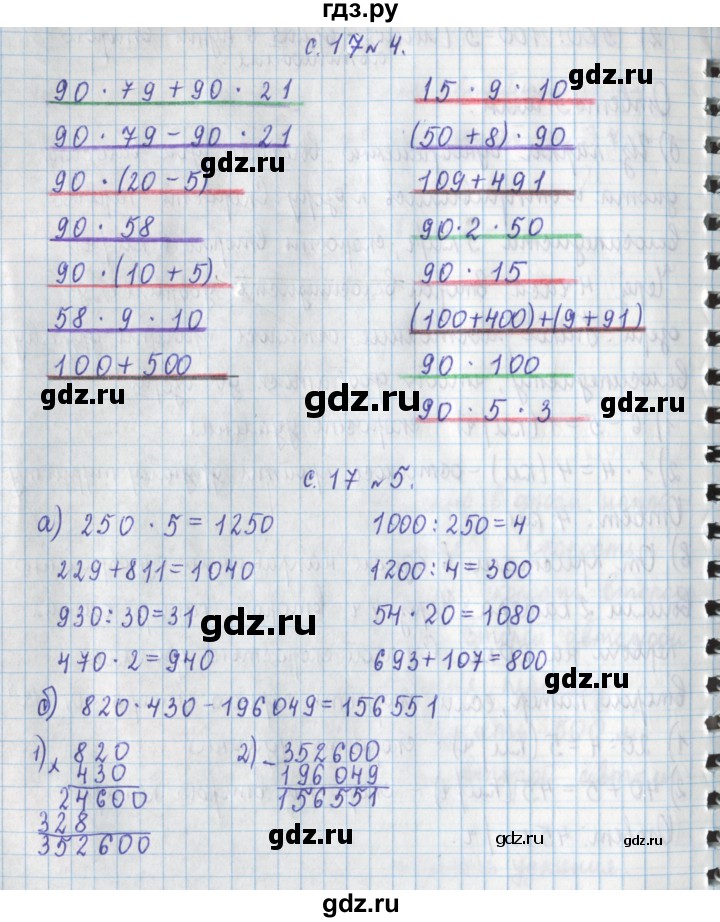 гдз.ру
с. 17 № 4.
90 · 79 + 90 · 21
90 · 79 - 90 · 21
90 · (20 - 5)
90 · 58
90 · (10 + 5)
58 · 9 · 10
100 + 500
15 · 9 · 10
(50 + 8) · 90
109 + 491
90 · 2 · 50
90 · 15
(100 + 400) + (9 + 91)
90 · 100
90 · 5 · 3
gdz.ru
gdz.ru
gdz.ru
gdz.ru
gdz.ru
с. 17 № 5.
а) 250 · 5 = 1250
1000 : 250 = 4
229 + 811 = 1040
1200 : 4 = 300
930 : 30 = 31
54 · 20 = 1080
470 · 2 = 940
693 + 107 = 800
gdz.ru
gdz.ru
б) 820 · 430 - 196 049 = 156 551
1) × 820
430
24600
328
352600
2) - 352600
196 049
156 551
gdz.ru
gdz.ru
gdz.ru
gdz.ru